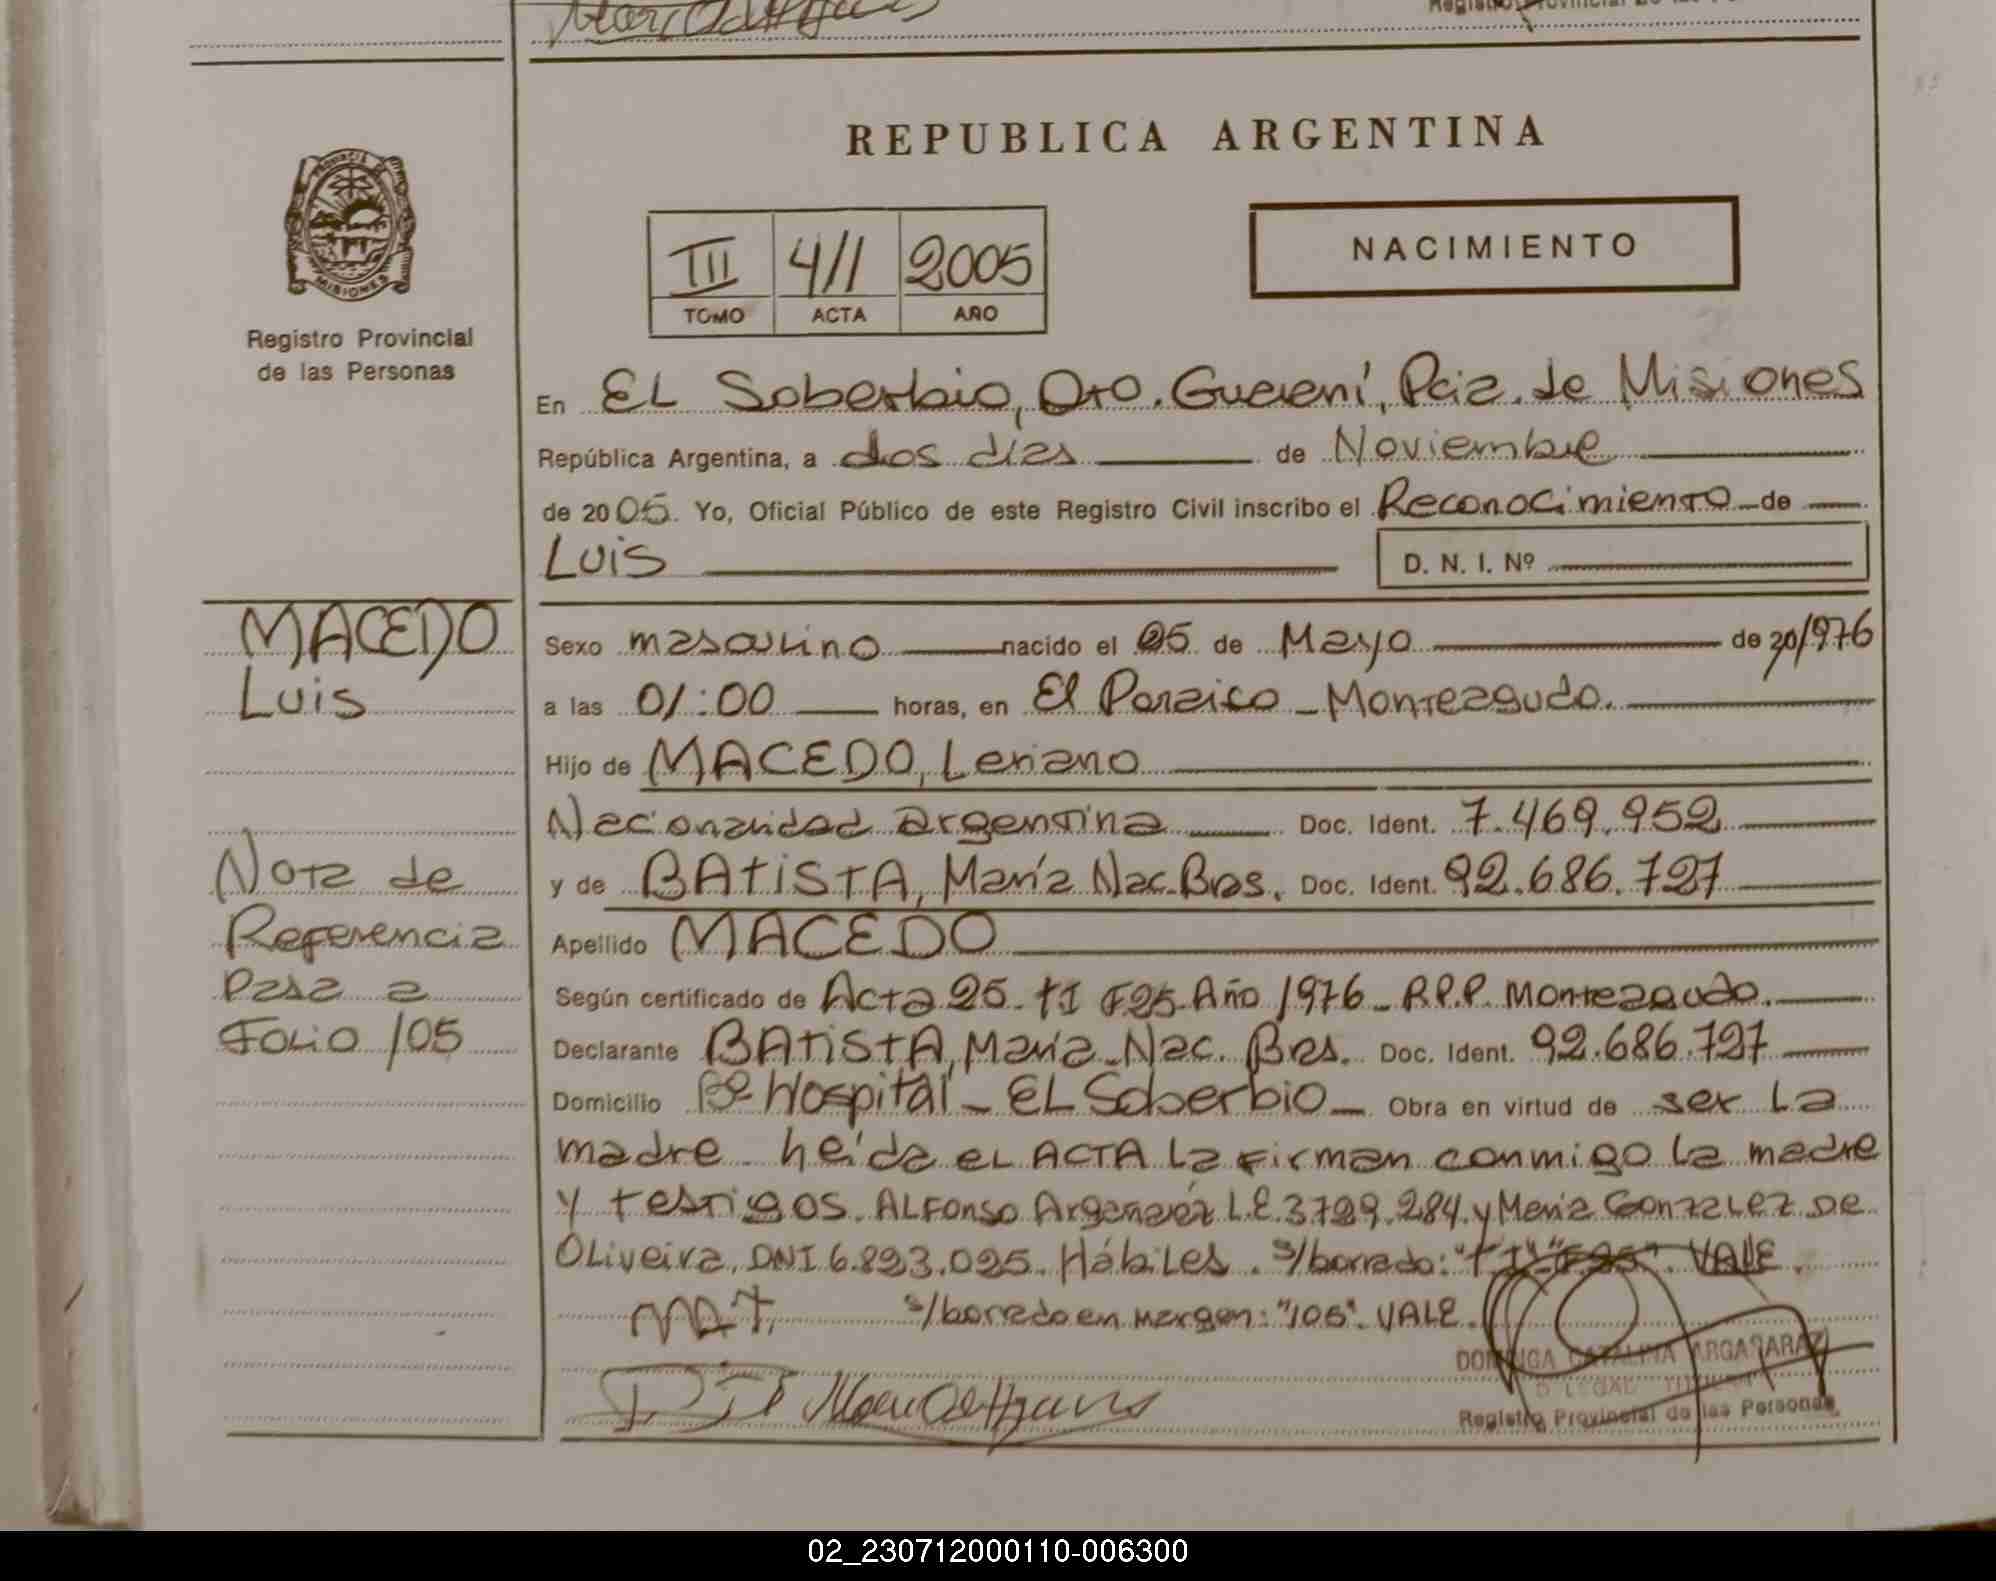 REPUBLICA ARGENTINA
PROVINCIA DE
MISIONES
Registro Provincial
de las Personas
III 411 2005
TOMO ACTA AÑO
NACIMIENTO
En EL Soberbio, Dto. Guaraní, Pcia. de Misiones
República Argentina, a dos días de Noviembre
de 2005. Yo, Oficial Público de este Registro Civil inscribo el Reconocimiento de
Luis D. N. I. Nº
MACEDO
Luis
Sexo masculino nacido el 25 de Mayo de 20/976
a las 01:00 horas, en El Paraiso - Monteagudo.
Hijo de MACEDO, Leriano
Nacionalidad argentina Doc. Ident. 7.469.952
y de BATiSTA, María Nac. Bras. Doc. Ident. 92.686.727
Apellido MACEDO
Nota de
Referencia
Pasa a
Folio 105
Según certificado de Acta 25 tI F25 Año 1976 - R.P.P. Monteagudo.
Declarante BATiStA, María - Nac. Bras. Doc. Ident. 92.686.727
Domicilio Bº Hospital - EL Soberbio - Obra en virtud de ser La
madre heída el ACTA La firman conmigo la madre
y testigos. ALFonso Argañaráz L.E. 3729.284. y María Gonzalez De
Oliveira, DNI 6.823.025. Hábiles. s/borrado: "tI" "F25". VALE.
s/borrado en margen: "105". VALE.
DOMINGA CATALINA ARGAÑARAZ
Registro Provincial de las Personas
02_230712000110-006300